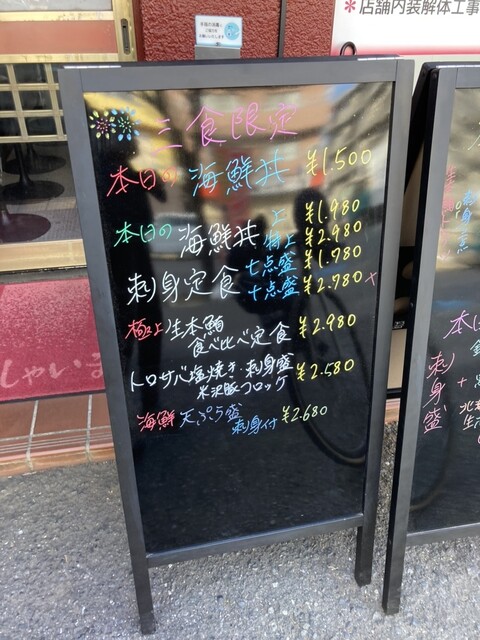 *店舗内装解体工事
三食限定
本日の 海鮮丼 ¥1.500
本日の 海鮮丼 上 ¥1.980
特上 ¥2.980
刺身定食 七点盛 ¥1.780
十点盛 ¥2.780
極上生本鮪
食べ比べ定食 ¥2.980
トロサバ塩焼き・刺身盛 ¥2.580
米沢豚コロッケ
海鮮 天ぷら盛 ¥2.680
刺身付
しゃいま
本日
刺身盛